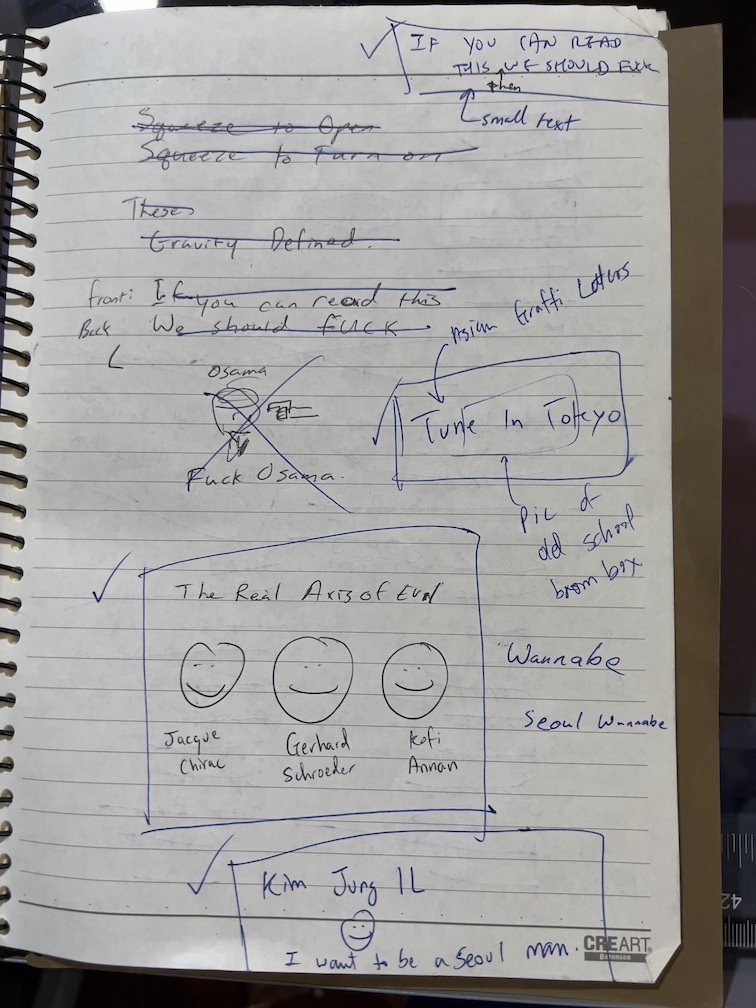 IF YOU CAN READ
THIS WE SHOULD FUCK
then
small text
Squeeze to Open
Squeeze to Turn on
Theses
Gravity Defined.
Front: If you can read this
Back We should FUCK.
Asian Graffi Letters
Osama
Fuck Osama.
Tune In Tokyo
Pic of
old school
boom box
The Real Axis of Evil
Jacque
Chirac
Gerhard
Schroeder
Kofi
Annan
Wannabe
Seoul Wannabe
Kim Jung IL
I want to be a Seoul man.
CREART
42